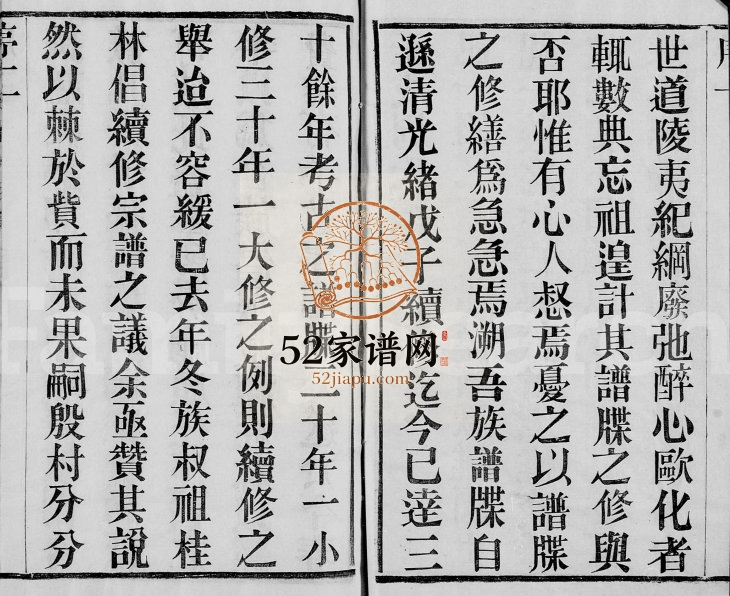 世道陵夷紀綱廢弛醉心歐化者
輒數典忘祖遑計其譜牒之修與
否耶惟有心人惄焉憂之以譜牒
之修繕爲急急焉溯吾族譜牒自
遜清光緒戊子續修迄今已達三
十餘年考古之譜牒二十年一小
修三十年一大修之例則續修之
舉迨不容緩已去年冬族叔祖桂
林倡續修宗譜之議余亟贊其說
然以棘於貲而未果嗣殷村分分
52家谱网
52jiapu.com